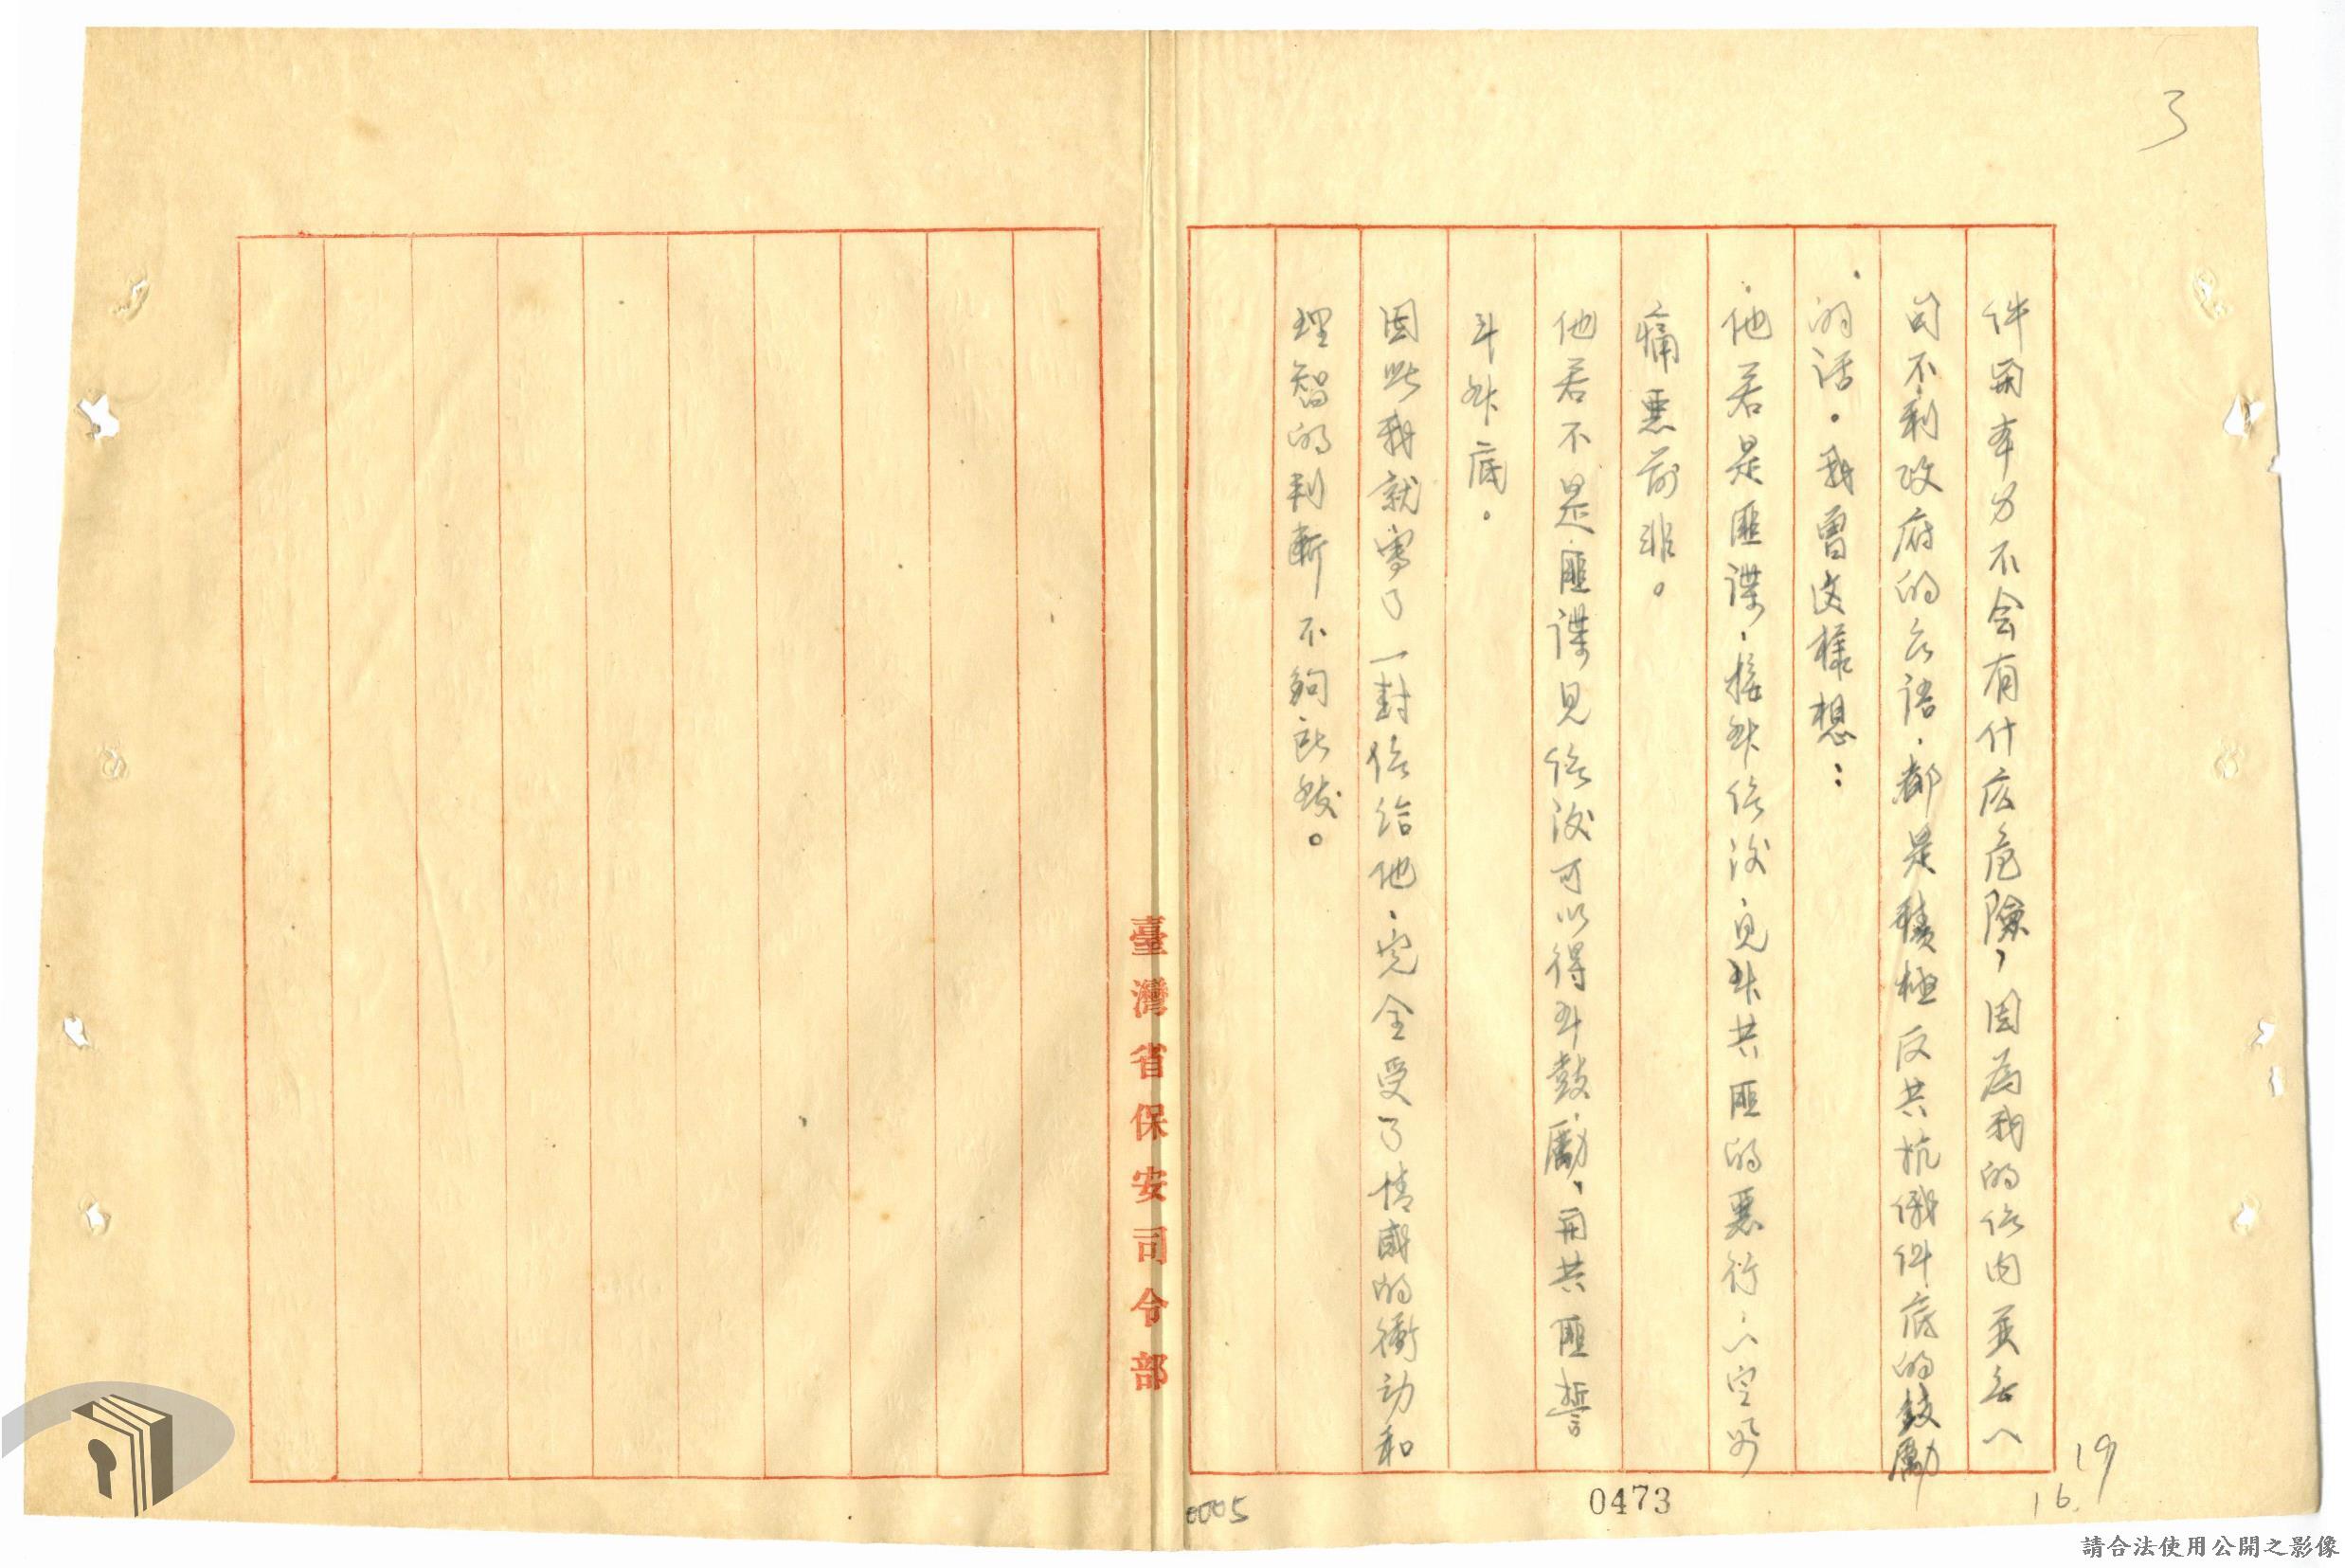 3
件原本身不会有什広危險，因為我的信內並無一
句不利政府的言語，都是積極反共抗俄件底的鼓勵
的話。我曾这樣想：
他若是匪諜，接升信後，見升共匪的悪行，一定能
痛悪前非。
他若不是匪諜見信後可以得升鼓勵，用共匪誓
斗升底。
因此我就寫了一封信给他，完全受了情感的衝动和
理智的判断不夠所致。
臺灣省保安司令部
19
16.
0473
0005
請合法使用公開之影像